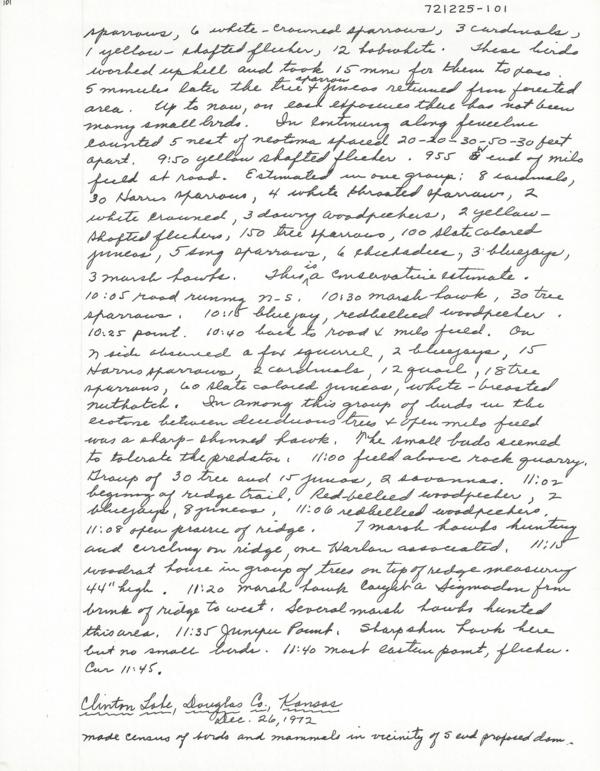 101
721225-101
sparrows, 6 white-crowned sparrows, 3 cardinals,
1 yellow-shafted flicker, 12 bobwhite. These birds
worked uphill and took 15 min for them to pass.
5 minutes later the tree sparrows + juncos returned from forested
area. Up to now, on east exposures there has not been
many small birds. In continuing along fenceline
counted 5 nest of neotoma spaced 20-20-30-50-30 feet
apart. 9:50 yellow shafted flicker. 955 end of milo
field at road. Estimated in one group: 8 cardinals,
30 Harris sparrows, 4 white throated sparrows, 2
white crowned, 3 downy woodpeckers, 2 yellow-
shafted flickers, 150 tree sparrows, 100 slate colored
juncos, 5 song sparrows, 6 chickadees, 3 bluejays,
3 marsh hawks. This is a conservative estimate.
10:05 road running N-S. 10:30 marsh hawk, 30 tree
sparrows. 10:15 bluejay, redbellied woodpecker.
10:25 point. 10:40 back to road & milo field. On
N side observed a fox squirrel, 2 bluejays, 15
Harris sparrows, 2 cardinals, 12 quail, 18 tree
sparrows, 60 slate colored juncos, white-breasted
nuthatch. In among this group of birds in the
ecotone between deciduous trees + open milo field
was a sharp-shinned hawk. The small birds seemed
to tolerate the predator. 11:00 field above rock quarry.
Group of 30 tree and 15 juncos, 2 savannas. 11:02
begining of ridge trail. Red-bellied woodpecker, 2
bluejays, 8 juncos, 11:06 redbellied woodpeckers.
11:08 open prairie of ridge. 7 marsh hawks hunting
and circling on ridge, one Harlan associated. 11:15
woodrat house in group of trees on top of ridge measuring
44" high. 11:20 marsh hawk caught a Sigmodon from
brink of ridge to west. Several marsh hawks hunted
this area. 11:35 Juniper Point. Sharpshin hawk here
but no small birds. 11:40 most eastern point, flicker.
Car 11:45.
Clinton Lake, Douglas Co., Kansas
Dec. 26, 1972
made census of birds and mammals in vicinity of S end proposed dam.